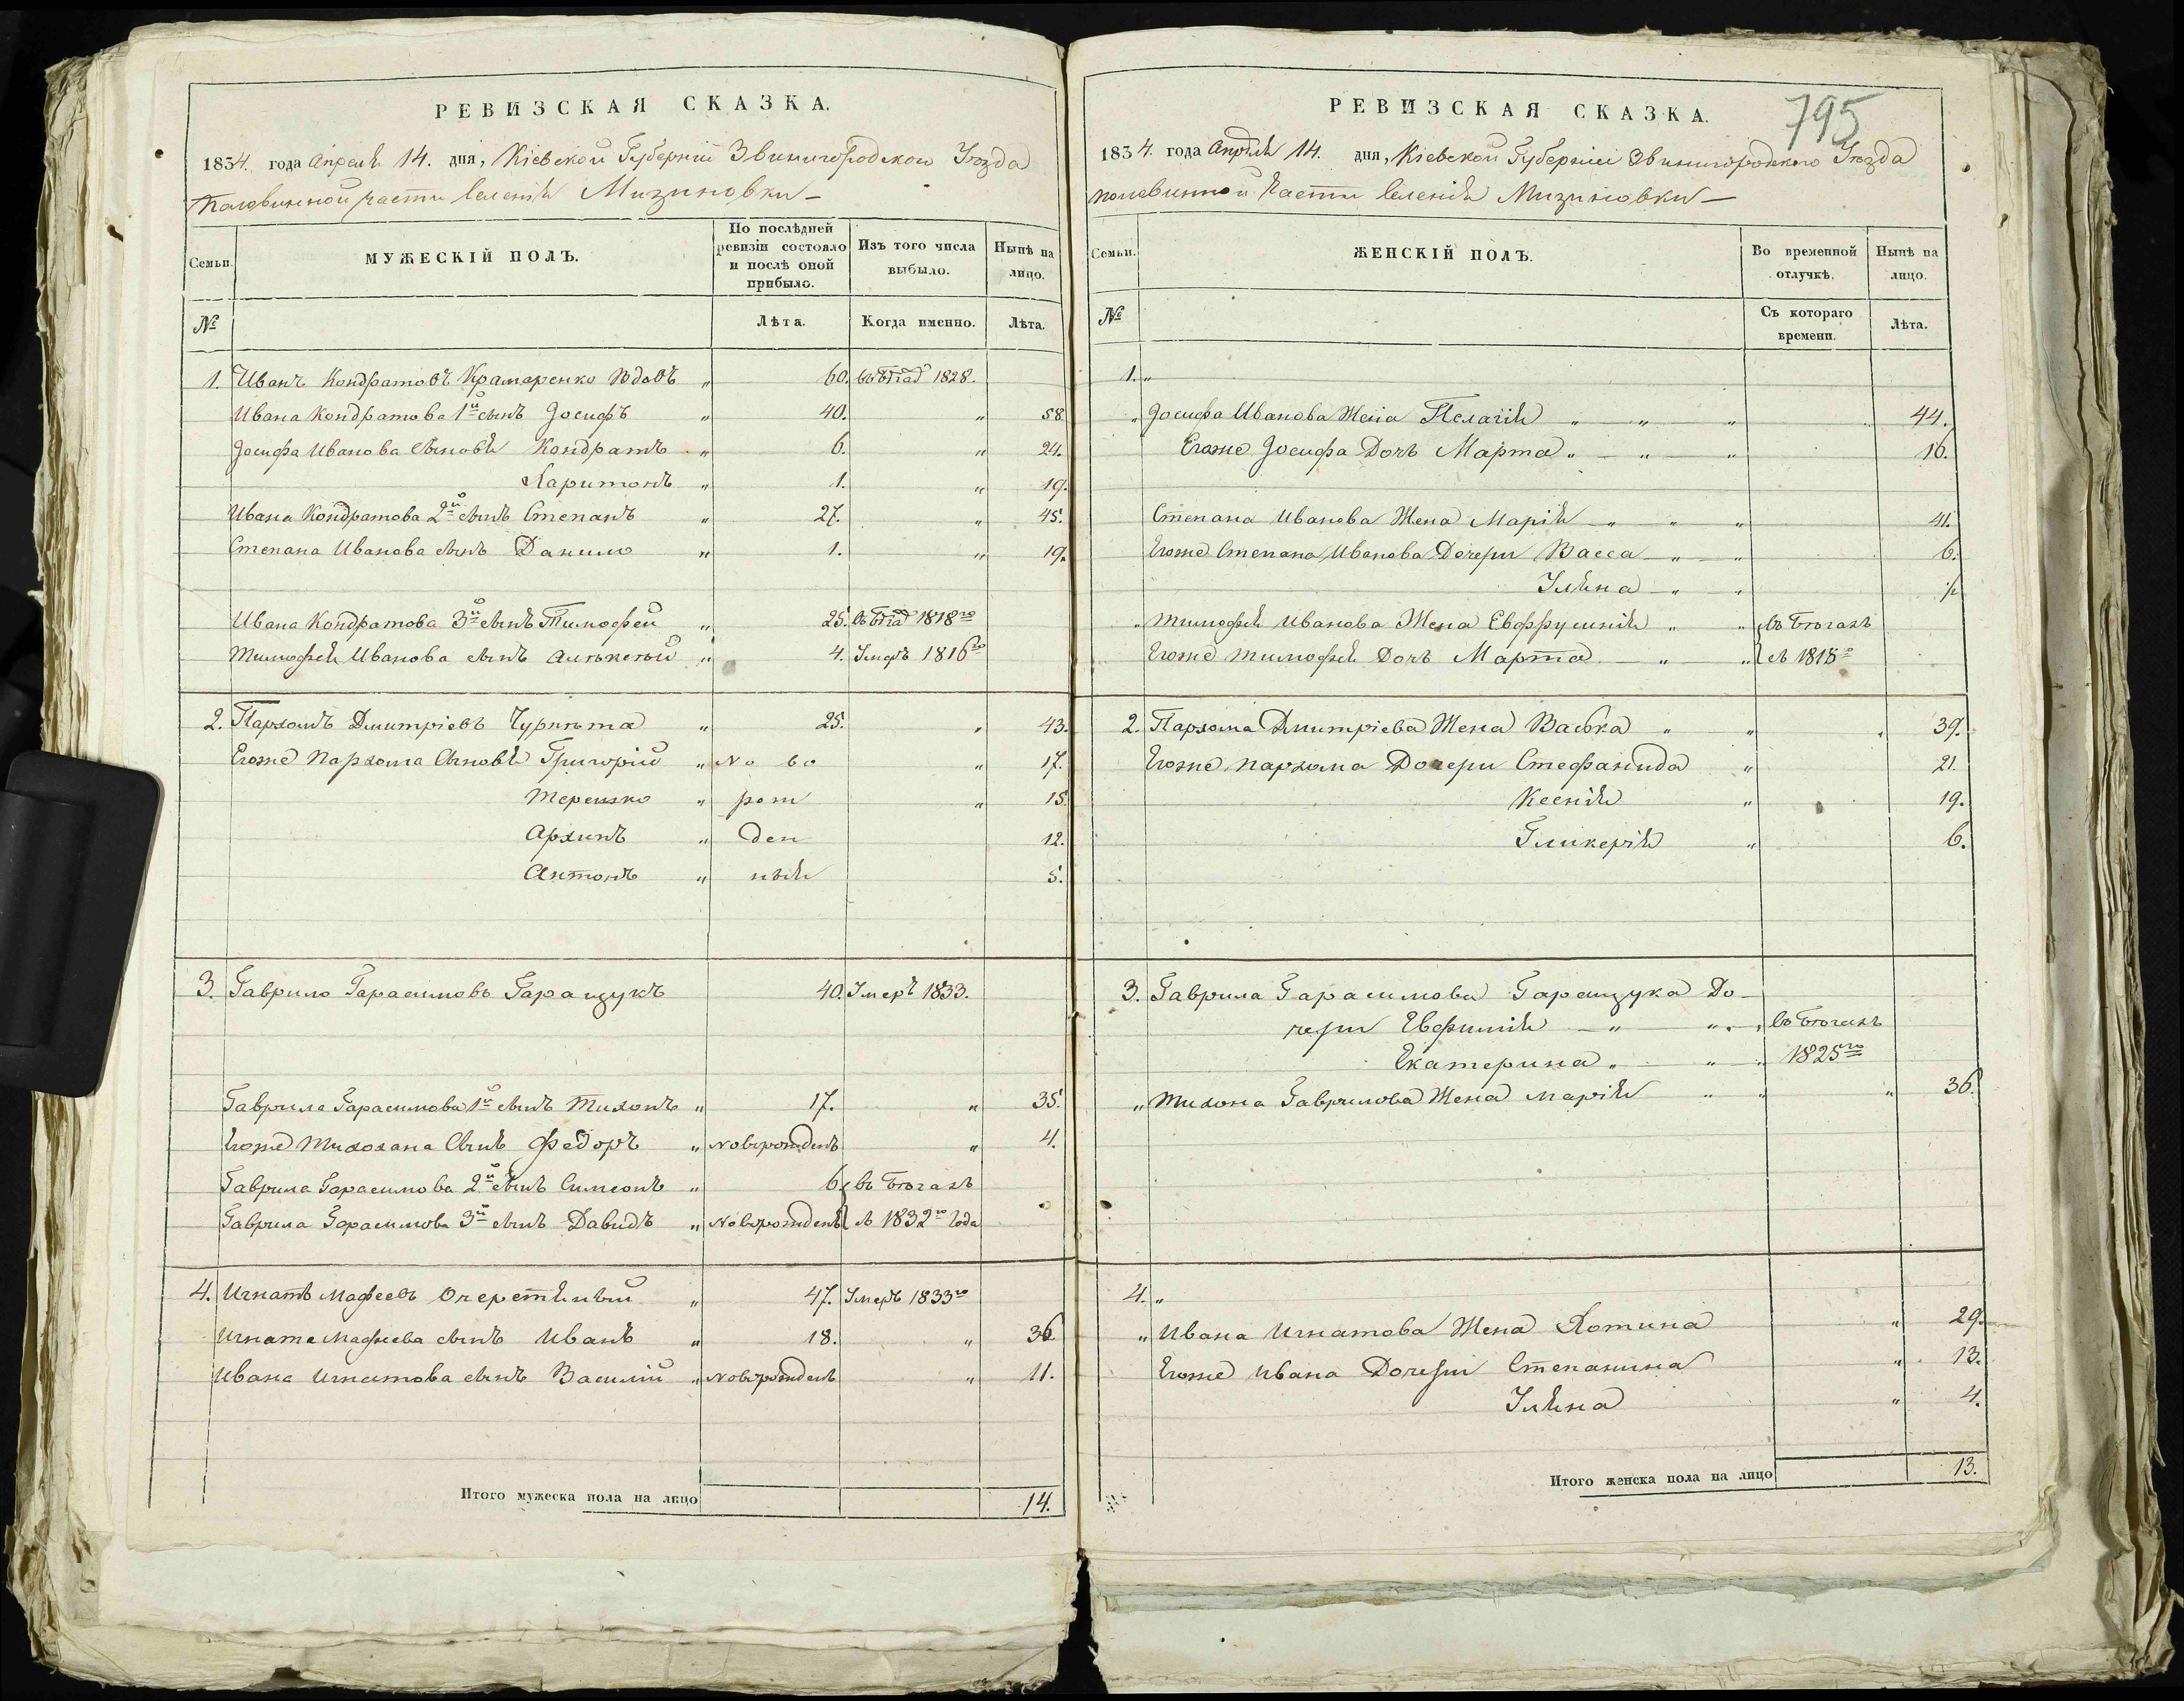 РЕВИЗСКАЯ СКАЗКА.
1834. года Апреля 14. дня, Кіевской Губерніи Звинигородскои Уѣзда
Половинной части Селенія Мизиновки –
Семьи.
МУЖЕСКІЙ ПОЛЪ.
По послѣдней ревизіи состояло и послѣ оной прибыло.
Изъ того числа выбыло.
Нынѣ на лицо.
№
Лѣта.
Когда именно.
Лѣта.
1. Иванъ Кондратовъ Крамаренко Вдовъ „ 60. 1828.
Ивана Кондратова 1й сынъ Іосифъ „ 40. „ 58
Іосифа Иванова сыновя Кондратъ „ 6. „ 24.
Харитонъ „ 1. „ 19.
Ивана Кондратова 2й сынъ Степанъ „ 27. „ 45.
Степана Иванова сынъ Данило „ 1. „ 19.
Ивана Кондратова 3й сынъ Тимофей „ 25. 1818го
Тимофея Иванова сынъ „ 4. Умеръ 1816го
2. Пархомъ Дмитріевъ Чупрыта „ 25. „ 43.
Егоже Пархома Сыновя Григорій „ Но во „ 17.
Терешко „ рож „ 15.
Архипъ „ ден 12.
Антонъ „ ныя 5.
3. Гаврило Гарасимовъ Гаращукъ 40. Умеръ 1833.
Гаврила Гарасимова 1й сынъ Тихонъ „ 17. „ 35.
Егоже Тихохана Сынъ Федоръ „ Новорожденъ „ 4.
Гаврила Гарасимова 2й сынъ Симеонъ „ 6. въ Бѣгахъ
Гаврила Гарасимова 3й сынъ Давидъ „ Новорожденъ съ 1832го года
4. Игнатъ Мафеевъ Очеретяный „ 47. Умеръ 1833го
Игната Мафеева сынъ Иванъ „ 18. „ 36
Ивана Игнатова сынъ Василій „ Новорожденъ „ 11.
Итого мужеска пола на лицо 14.
795
РЕВИЗСКАЯ СКАЗКА.
1834. года Апрѣля 14. дня, Кіевской Губерніи Звинигородского Уѣзда
половинной Части Селенія Мизиновки –
Семьи.
ЖЕНСКІЙ ПОЛЪ.
Во временной отлучкѣ.
Нынѣ на лицо.
№
Съ котораго времени.
Лѣта.
1. „
„ Іосифа Иванова Жена Пелагія „ „ „ 44.
Егоже Іосифа Дочъ Марта „ „ „ 16.
Степана Иванова Жена Марія „ „ „ 41.
Егоже Степана Иванова Дочери Васса „ „ 6.
Уляна „ „
„ Тимофея Иванова Жена Евффумія „ „ въ Бѣгахъ
Егоже Тимофея Дочъ Марта „ „ съ 1818го
2. Пархома Дмитріева Жена Васка „ „ „ 39.
Егоже Пархома Дочери Стефанида „ 21.
Ксенія „ 19.
Гликерія „ 6.
3. Гаврила Гарасимова Гаращука До-
чери Евфимія „ „ въ Бѣгахъ
Екатерина „ „ „ 1825го
„ Тихона Гаврилова Жена Марія „ „ „ 36.
4. „
„ Ивана Игнатова Жена Хотина „ 29.
Егоже Ивана Дочери Степанина „ 13.
Уляна „ 4.
Итого женска пола на лицо 13.